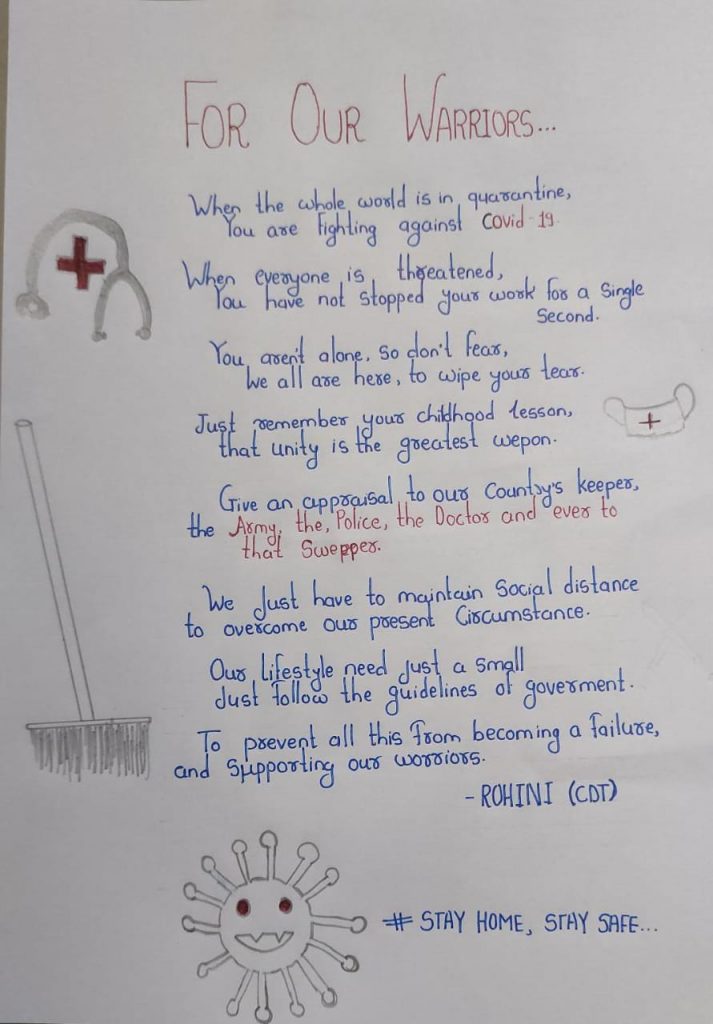 FOR OUR WARRIORS...
When the whole world is in quarantine,
You are fighting against Covid-19.
When everyone is threatened,
You have not stopped your work for a single
Second.
You aren't alone, so don't fear,
We all are here, to wipe your tear.
Just remember your childhood lesson,
that unity is the greatest wepon.
Give an appraisal to our Country's keeper,
the Army, the, Police, the Doctor and ever to
that Swepper.
We Just have to maintain Social distance
to overcome our present Circumstance.
Our lifestyle need just a small
Just follow the guidelines of goverment.
To prevent all this from becoming a failure,
and supporting our worriors.
- ROHINI (CDT)
# STAY HOME, STAY SAFE...